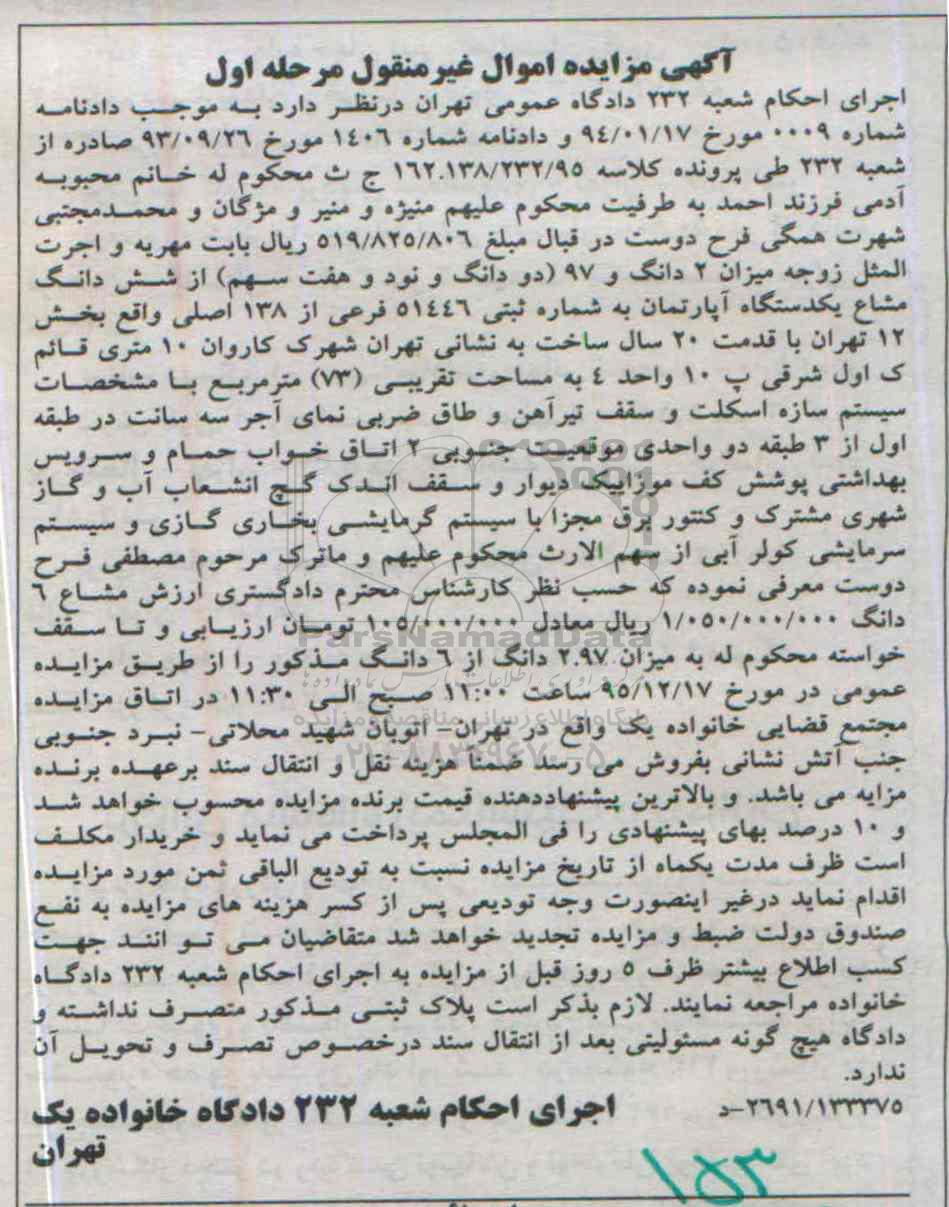 آگهی مزایده اموال غیرمنقول مرحله اول
اجرای احکام شعبه ۲۳۲ دادگاه عمومی تهران درنظر دارد به موجب دادنامه
شماره ۰۰۰۹ مورخ ۹٤/۰۱/۱۷ و دادنامه شماره ۱٤۰٦ مورخ ۹۳/۰۹/۲٦ صادره از
شعبه ۲۳۲ طی پرونده کلاسه ۱٦۲.۱۳۸/۲۳۲/۹٥ ج ث محکوم له خانم محبوبه
آدمی فرزند احمد به طرفیت محکوم علیهم منیژه و منیر و مژگان و محمدمجتبی
شهرت همگی فرح دوست در قبال مبلغ ٥۱۹/۸۲٥/۸۰٦ ریال بابت مهریه و اجرت
المثل زوجه میزان ۲ دانگ و ۹۷ (دو دانگ و نود و هفت سهم) از شش دانگ
مشاع یکدستگاه آپارتمان به شماره ثبتی ٥۱٤٤٦ فرعی از ۱۳۸ اصلی واقع بخش
۱۲ تهران با قدمت ۲۰ سال ساخت به نشانی تهران شهرک کاروان ۱۰ متری قائم
ک اول شرقی پ ۱۰ واحد ٤ به مساحت تقریبی (۷۳) مترمربع با مشخصات
سیستم سازه اسکلت و سقف تیرآهن و طاق ضربی نمای آجر سه سانت در طبقه
اول از ۳ طبقه دو واحدی موقعیت جنوبی ۲ اتاق خواب حمام و سرویس
بهداشتی پوشش کف موزاییک دیوار و سقف اندک گچ انشعاب آب و گاز
شهری مشترک و کنتور برق مجزا با سیستم گرمایشی بخاری گازی و سیستم
سرمایشی کولر آبی از سهم الارث محکوم علیهم و ماترک مرحوم مصطفی فرح
دوست معرفی نموده که حسب نظر کارشناس محترم دادگستری ارزش مشاع ٦
دانگ ۱/۰٥۰/۰۰۰/۰۰۰ ریال معادل ۱۰٥/۰۰۰/۰۰۰ تومان ارزیابی و تا سقف
خواسته محکوم له به میزان ۲.۹۷ دانگ از ٦ دانگ مذکور را از طریق مزایده
عمومی در مورخ ۹٥/۱۲/۱۷ ساعت ۱۱:۰۰ صبح الی ۱۱:۳۰ در اتاق مزایده
مجتمع قضایی خانواده یک واقع در تهران- اتوبان شهید محلاتی- نبرد جنوبی
جنب آتش نشانی بفروش می رسد ضمنا هزینه نقل و انتقال سند برعهده برنده
مزایه می باشد. و بالاترین پیشنهاددهنده قیمت برنده مزایده محسوب خواهد شد
و ۱۰ درصد بهای پیشنهادی را فی المجلس پرداخت می نماید و خریدار مکلف
است ظرف مدت یکماه از تاریخ مزایده نسبت به تودیع الباقی ثمن مورد مزایده
اقدام نماید درغیر اینصورت وجه تودیعی پس از کسر هزینه های مزایده به نفع
صندوق دولت ضبط و مزایده تجدید خواهد شد متقاضیان می تو انند جهت
کسب اطلاع بیشتر ظرف ٥ روز قبل از مزایده به اجرای احکام شعبه ۲۳۲ دادگاه
خانواده مراجعه نمایند. لازم بذکر است پلاک ثبتی مذکور متصرف نداشته و
دادگاه هیچ گونه مسئولیتی بعد از انتقال سند درخصوص تصرف و تحویل آن
ندارد.
۲٦۹۱/۱۳۳۳۷٥-د
اجرای احکام شعبه ۲۳۲ دادگاه خانواده یک
تهران
۱۵۳
ParsNamadData
پایگاه اطلاع رسانی مناقصه و مزایده